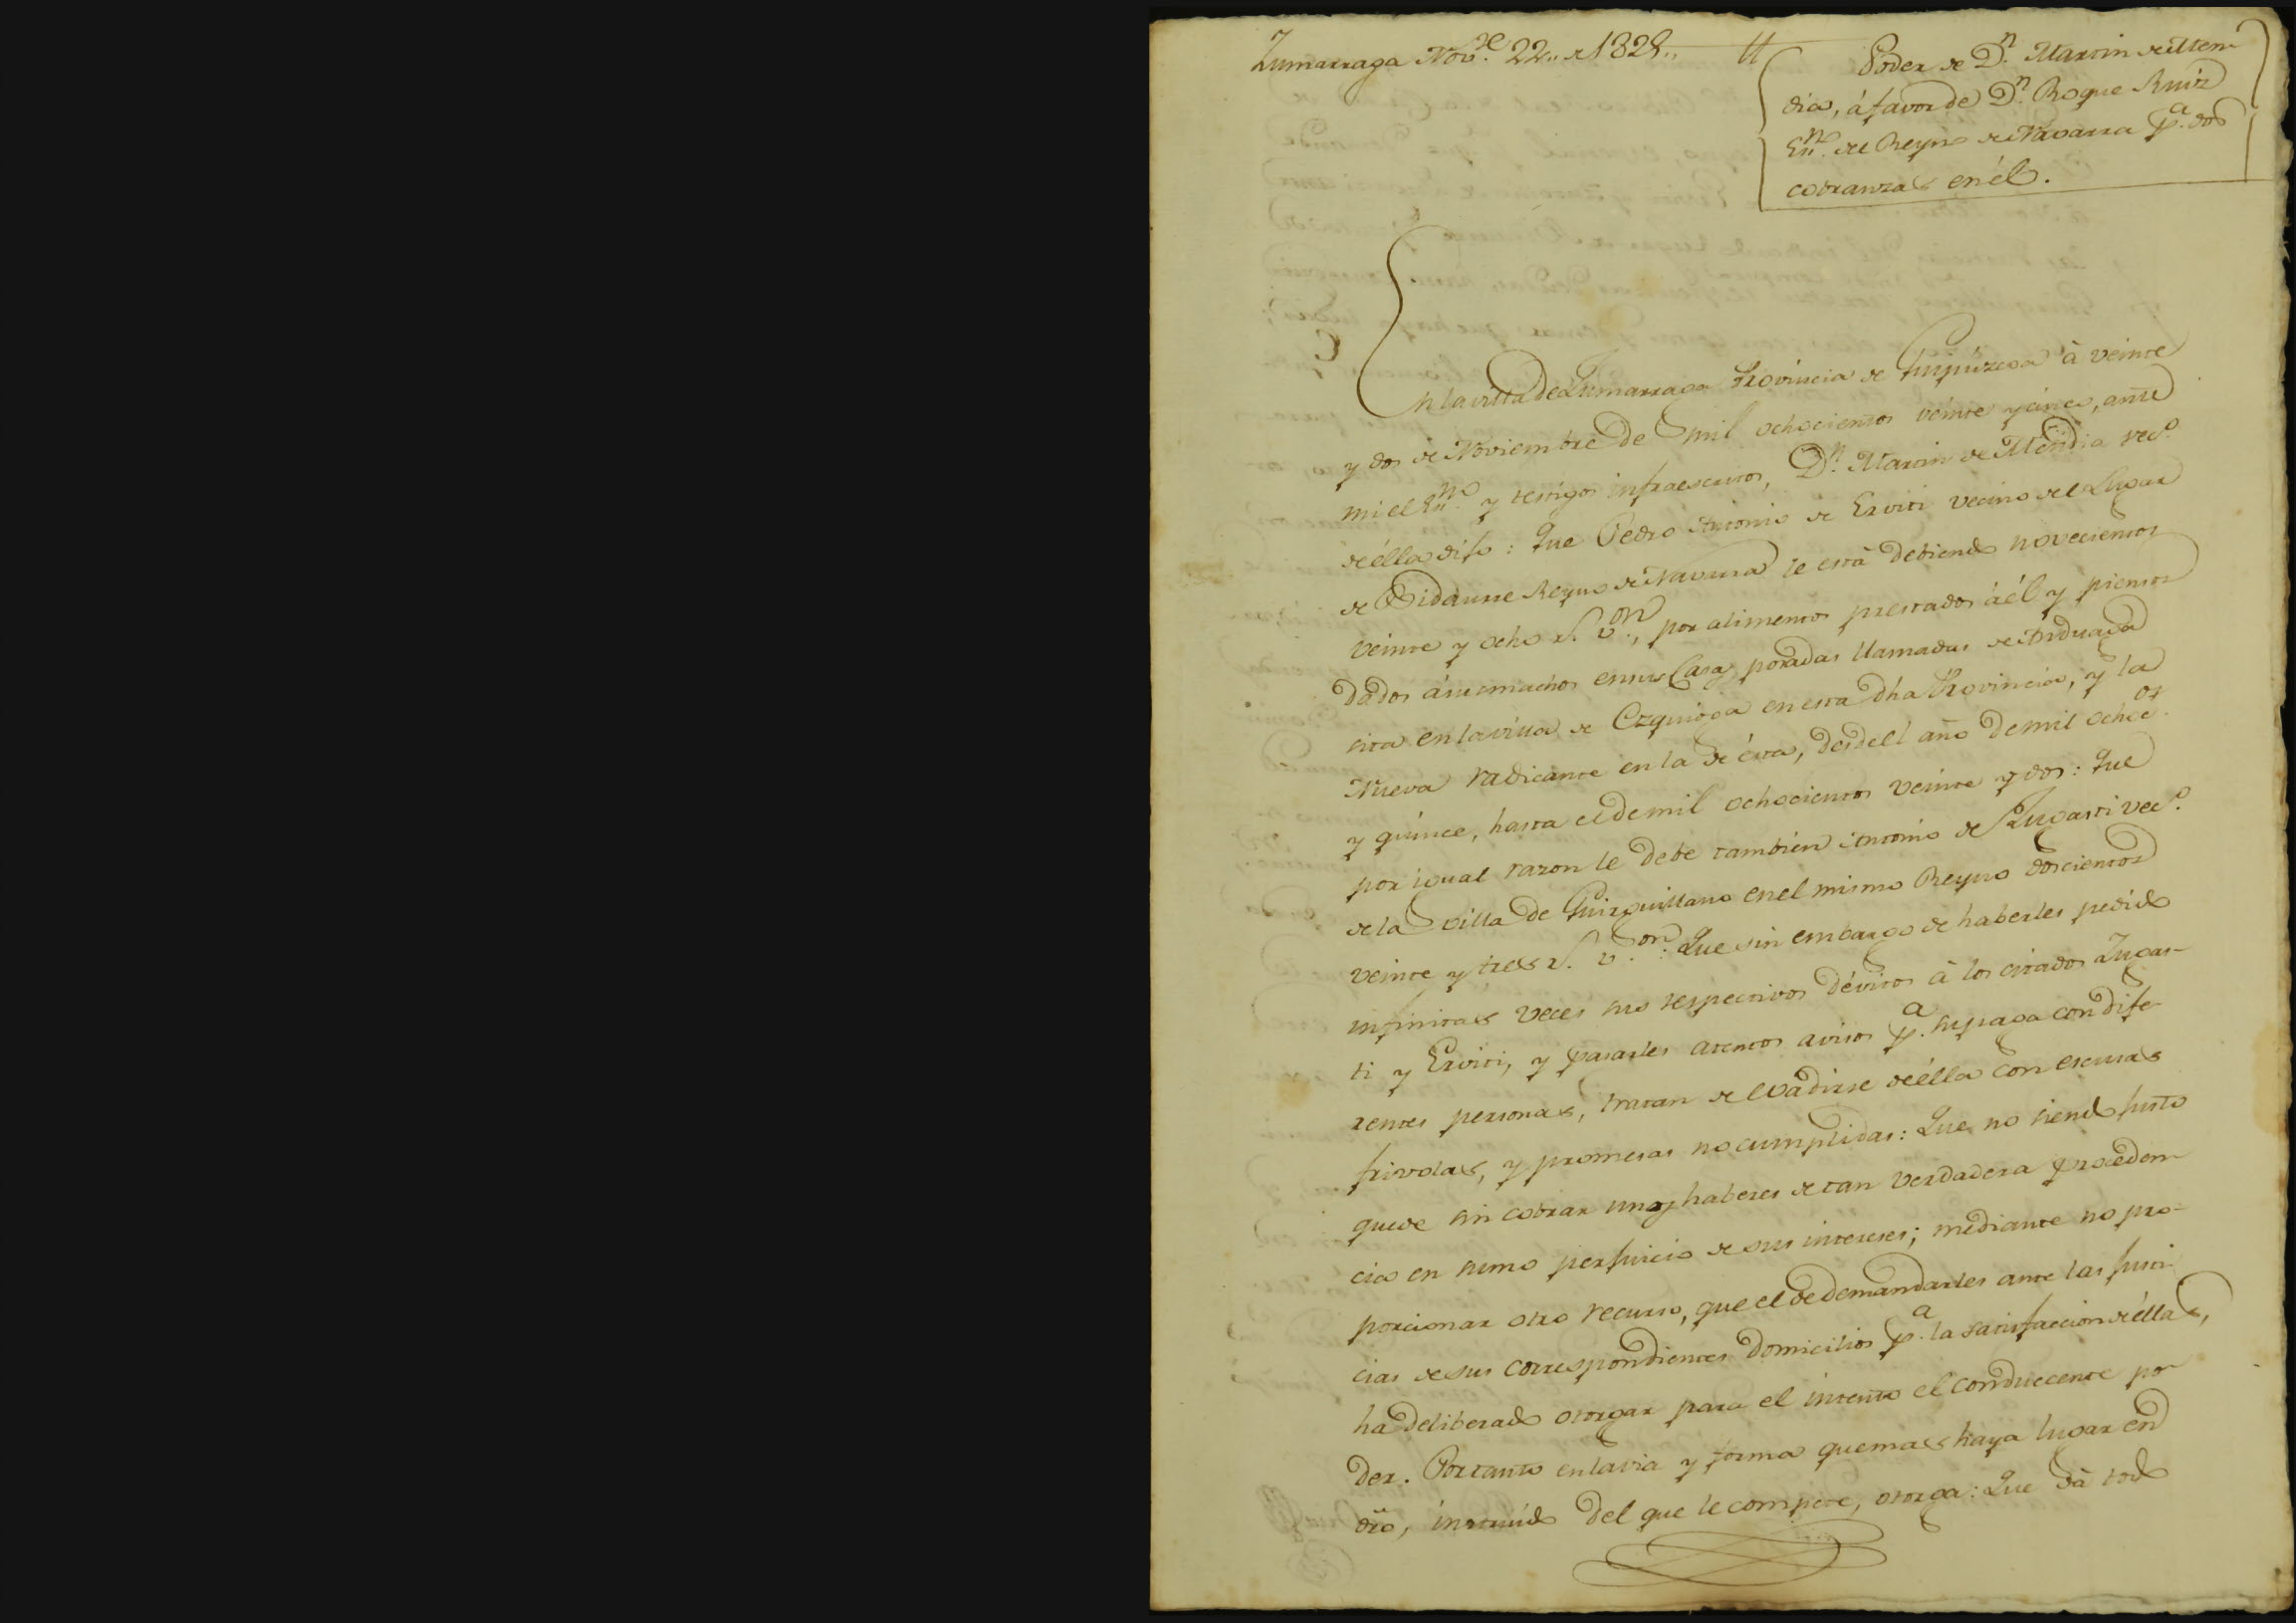 Zumarraga Nov.re 22., de 1825.,
Poder de D.n Martin de Men-
dia, á favor de D.n Roque Ruiz
Er.no del Reyno de Navarra p.a dos
cobranzas en él.
En la villa de Zumarraga Provincia de Guipúzcoa à veinte
y dos de Noviembre de mil ochocientos veinte y cinco, ante
mi el Er.no y testigos infraescritos, D.n Martin de Mendia vec.o
de élla dijo: Que Pedro Antonio de Erviti vecino del Lugar
de Bidaurre Reyno de Navarra le està debiendo novecientos
veinte y ocho r.s v.on, por alimentos prestados á él y piensos
dados á sus machos en sus Casas posadas llamadas de Anduaga
sita en la villa de Ezquioga en esta dha Provincia, y la
Nueva radicante en la de ésta, desde el año de mil ochoc.os
y quince, hasta el de mil ochocientos veinte y dos: Que
por igual razon le debe tambien Antonio de Zugasti vec.o
de la villa de Guirguillano en el mismo Reyno doscientos
veinte y tres r.s v.on: Que sin embargo de haberles pedido
infinitas veces sus respectivos dévitos à los citados Zugas-
ti y Erviti, y pasarles atentos avisos p.a su paga con dife-
rentes personas, tratan de evadirse de élla con escusas
frivolas, y promesas no cumplidas: Que no siendo justo
quede sin cobrar unos haberes de tan verdadera proceden-
cia en sumo perjuicio de sus intereses; mediante no pro-
porcionar otro recurso, que el de demandarles ante las justi-
cias de sus correspondientes domicilios p.a la satisfaccion de éllas,
ha deliberado otorgar para el intento el conducente po-
der. Por tanto en la via y forma que mas haya lugar en
dro, instruido del que le compete, otorga: Que dà todo